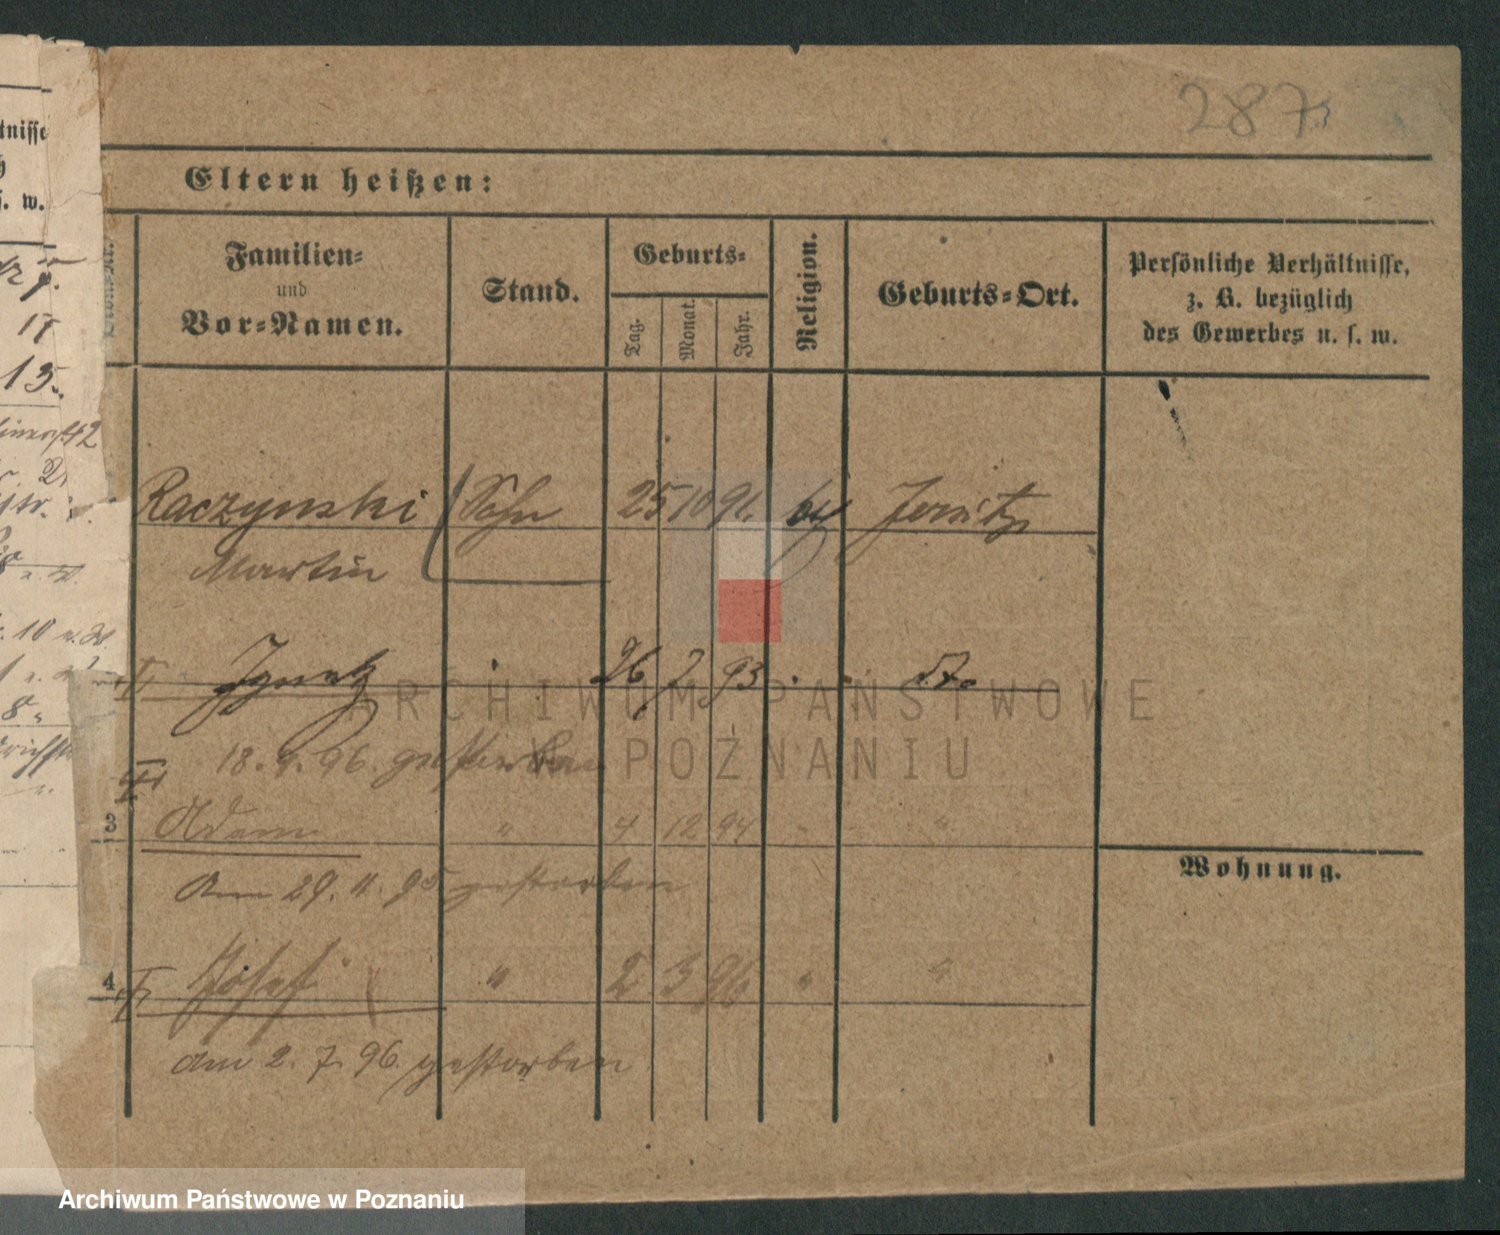 287
Eltern heißen:
Familien=
und
Vor=Namen.
Stand.
Geburts=
Tag.
Monat.
Jahr.
Religion.
Geburts=Ort.
Persönliche Verhältnisse,
z. B. bezüglich
des Gewerbes u. s. w.
tnisse
s. w.
17
13.
42
Raczynski Sohn 25 10 91. Jersitz
Martin
Ignatz 26 7 93 d.
18. 9. 96. gestorben
3 Adam " 4 12 94 "
Am 29. 11. 95 gestorben
Wohnung.
4 Josef " 2 3 96 " "
am 2. 7. 96. gestorben
ARCHIWUM PAŃSTWOWE
W POZNANIU
Archiwum Państwowe w Poznaniu